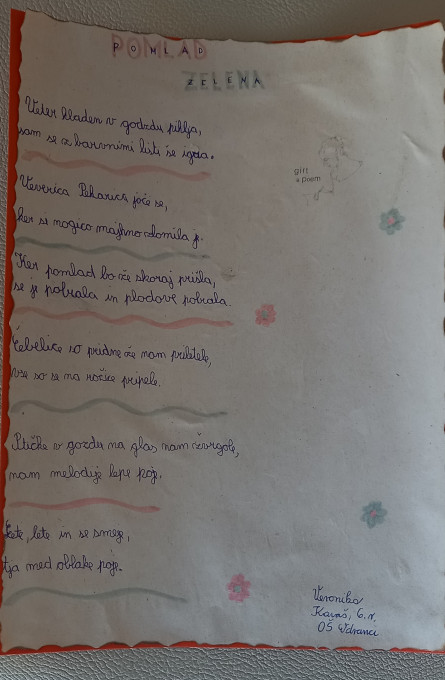 POMLAD
ZELENA
Veter hladen v gozdu piklja,
sam se z barvnimi listi še igra.
girl
+ poem
Veverica joče se,
ker si nogico majhno zlomila je.
Ker pomlad bo že skoraj prišla,
se je pobrala in plodove pobrala.
Čebelice so pridne že nam priletele,
vse so se na rožice pripele.
Ptičke v gozdu na glas nam žvrgole,
nam melodije lepe poje.
Lete, lete in se smeje,
tja med oblake poje.
Veronika
6. r.
OŠ Odranci